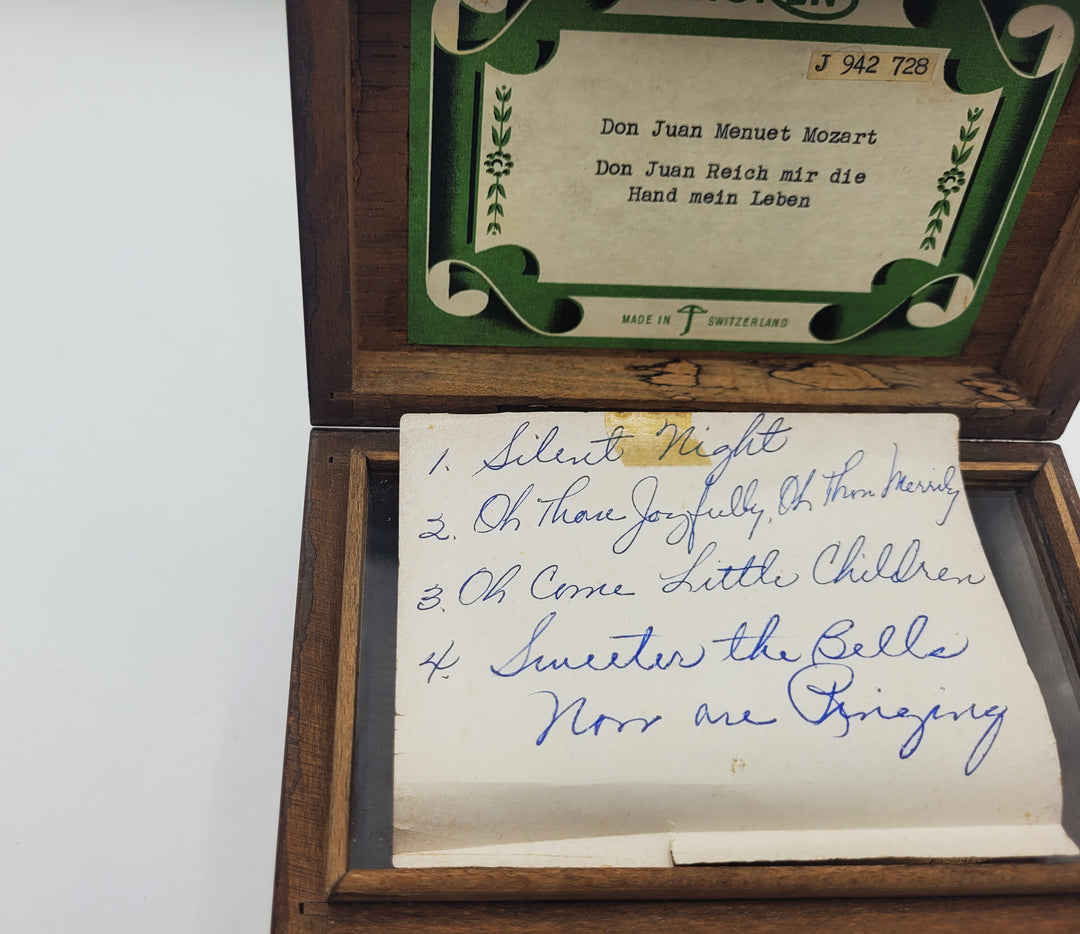 J 942 728
Don Juan Menuet Mozart
Don Juan Reich mir die
Hand mein Leben
MADE IN SWITZERLAND
1. Silent Night
2. Oh Thou Joyfully, Oh Thou Merrily
3. Oh Come Little Children
4. Sweeter the Bells
Now are Ringing